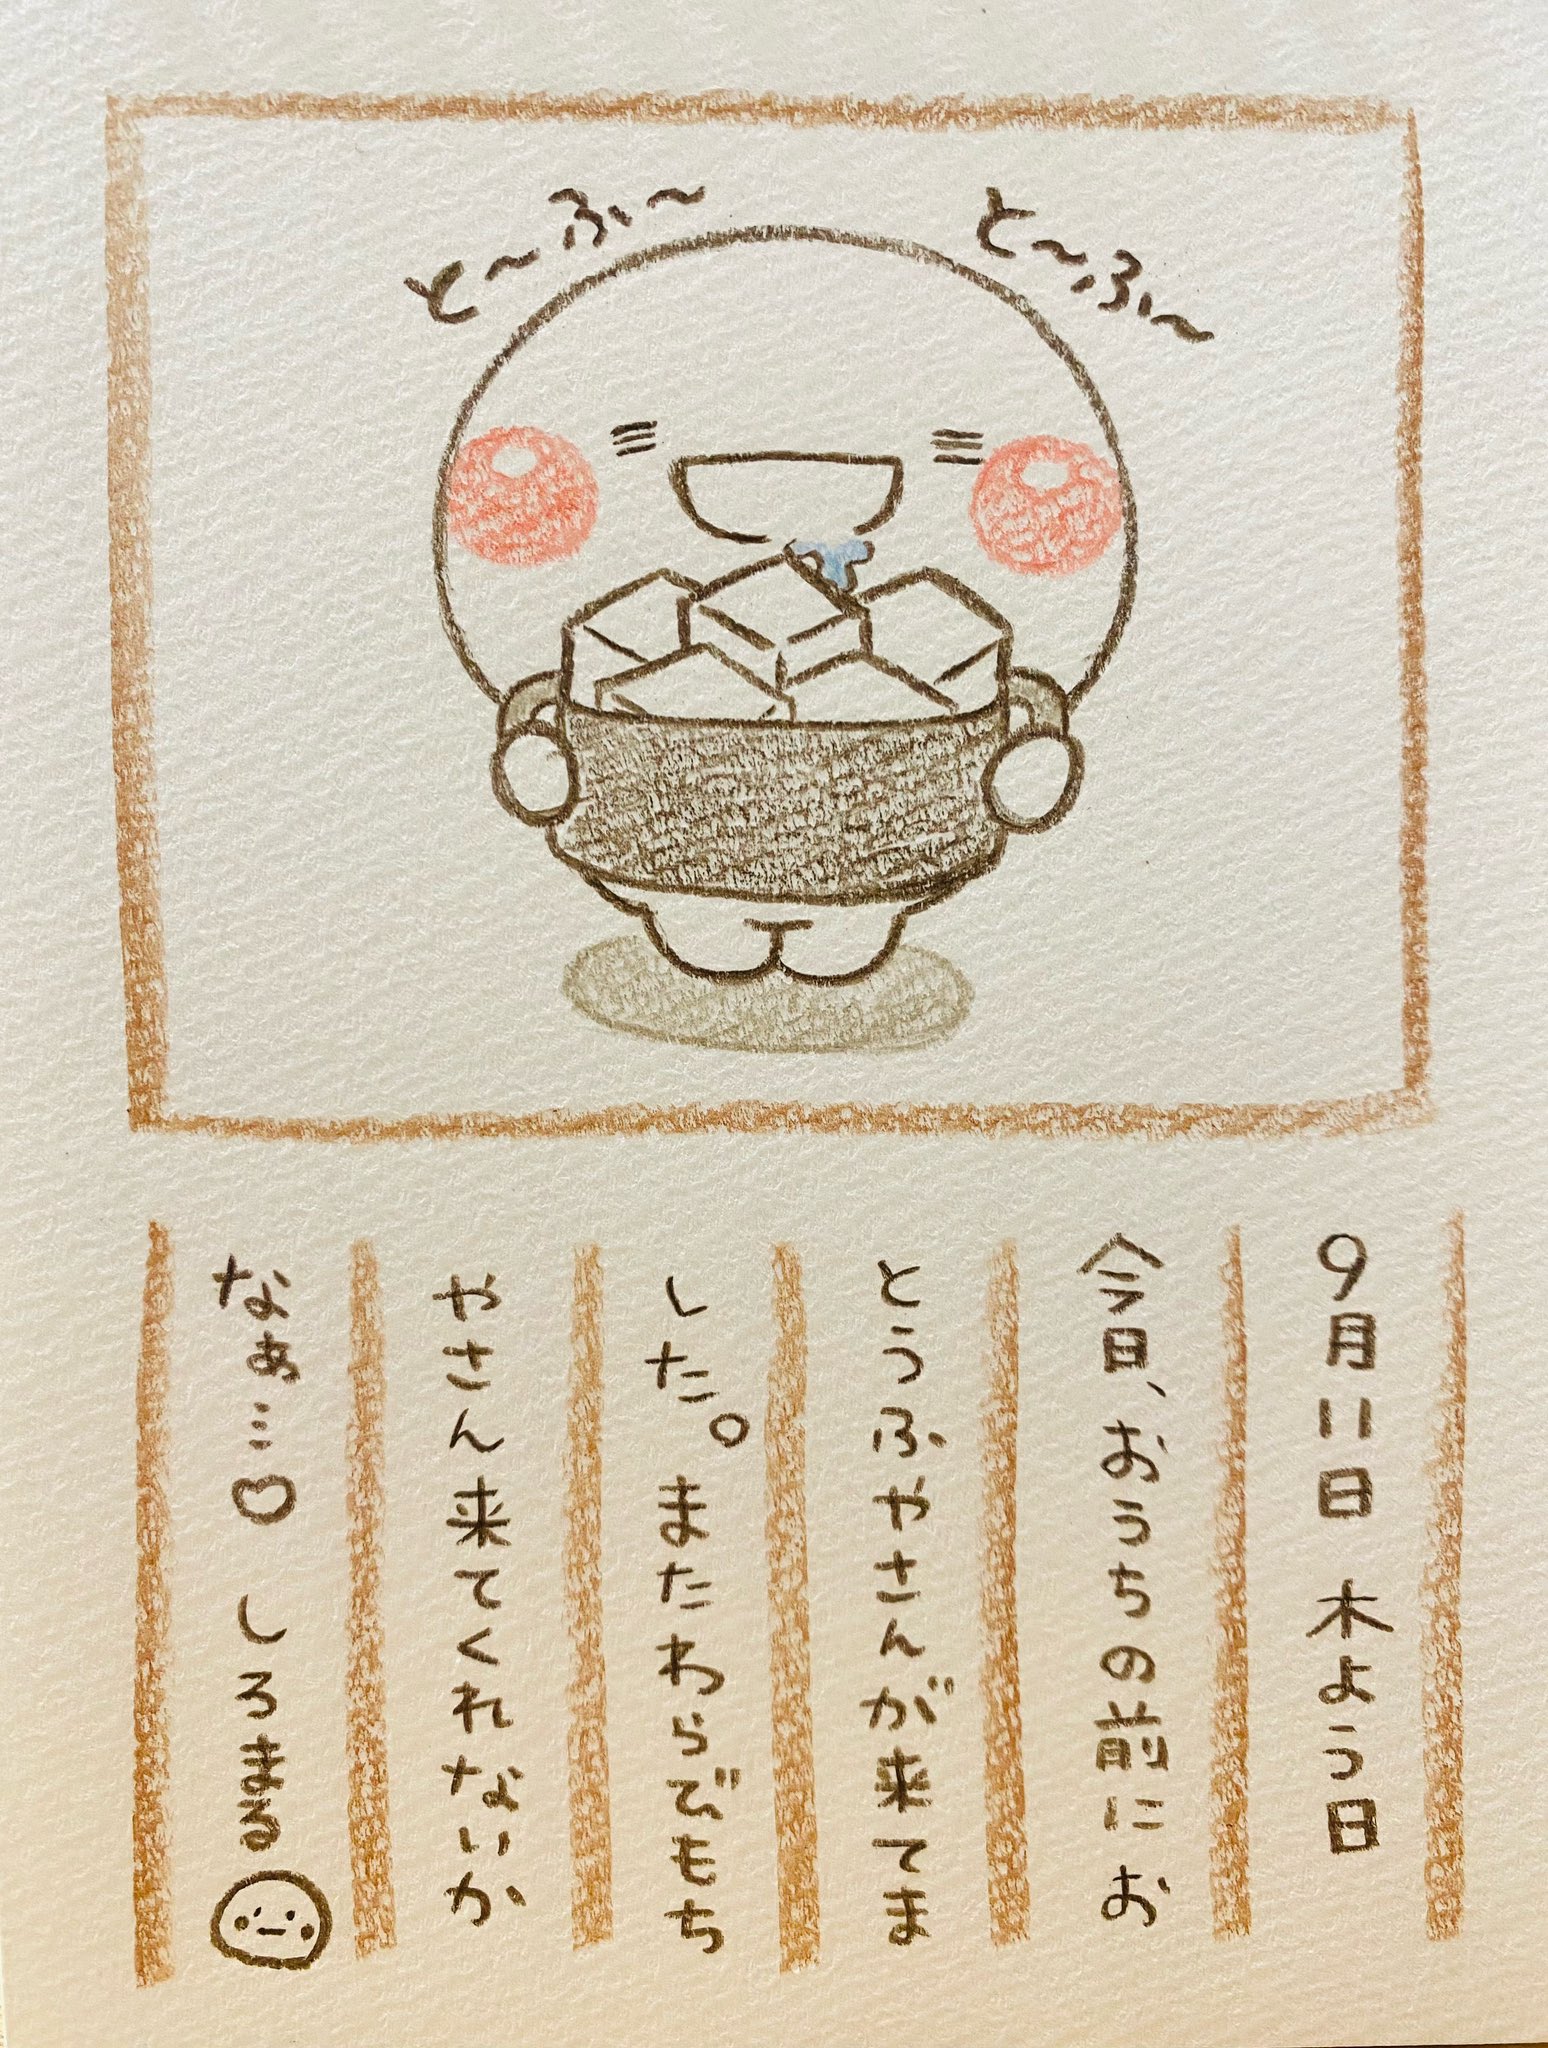 と〜ふ〜
と〜ふ〜
9月11日 木よう日
今日、おうちの前にお
とうふやさんが来てま
した。またわらびもち
やさん来てくれないか
なぁ…♡ しろまる